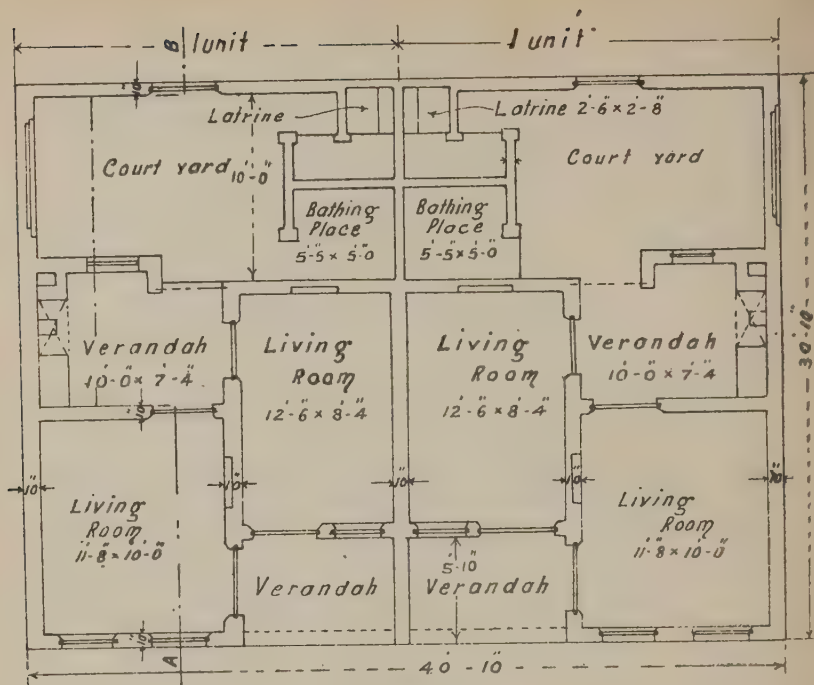 1 unit
1 unit
B
10"
Latrine
Latrine 2'-6" x 2'-8"
Court yard
10'-0"
Court yard
Bathing
Place
5'-5" x 5'-0"
Bathing
Place
5'-5" x 5'-0"
Verandah
10'-0" x 7'-4"
Living
Room
12'-6" x 8'-4"
Living
Room
12'-6" x 8'-4"
Verandah
10'-0" x 7'-4"
30'-10"
10"
10"
10"
10"
10"
10"
Living
Room
11'-8" x 10'-0"
Living
Room
11'-8" x 10'-0"
Verandah
5'-10"
Verandah
10"
A
40'-10"